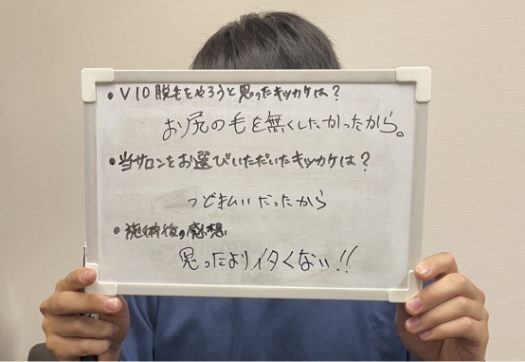 • VIO脱毛をやろうと思ったキッカケは？
お尻の毛を無くしたかったから。
• 当サロンをお選びいただいたキッカケは？
つど払いだったから
• 施術後の感想
思ったよりイタくない!!